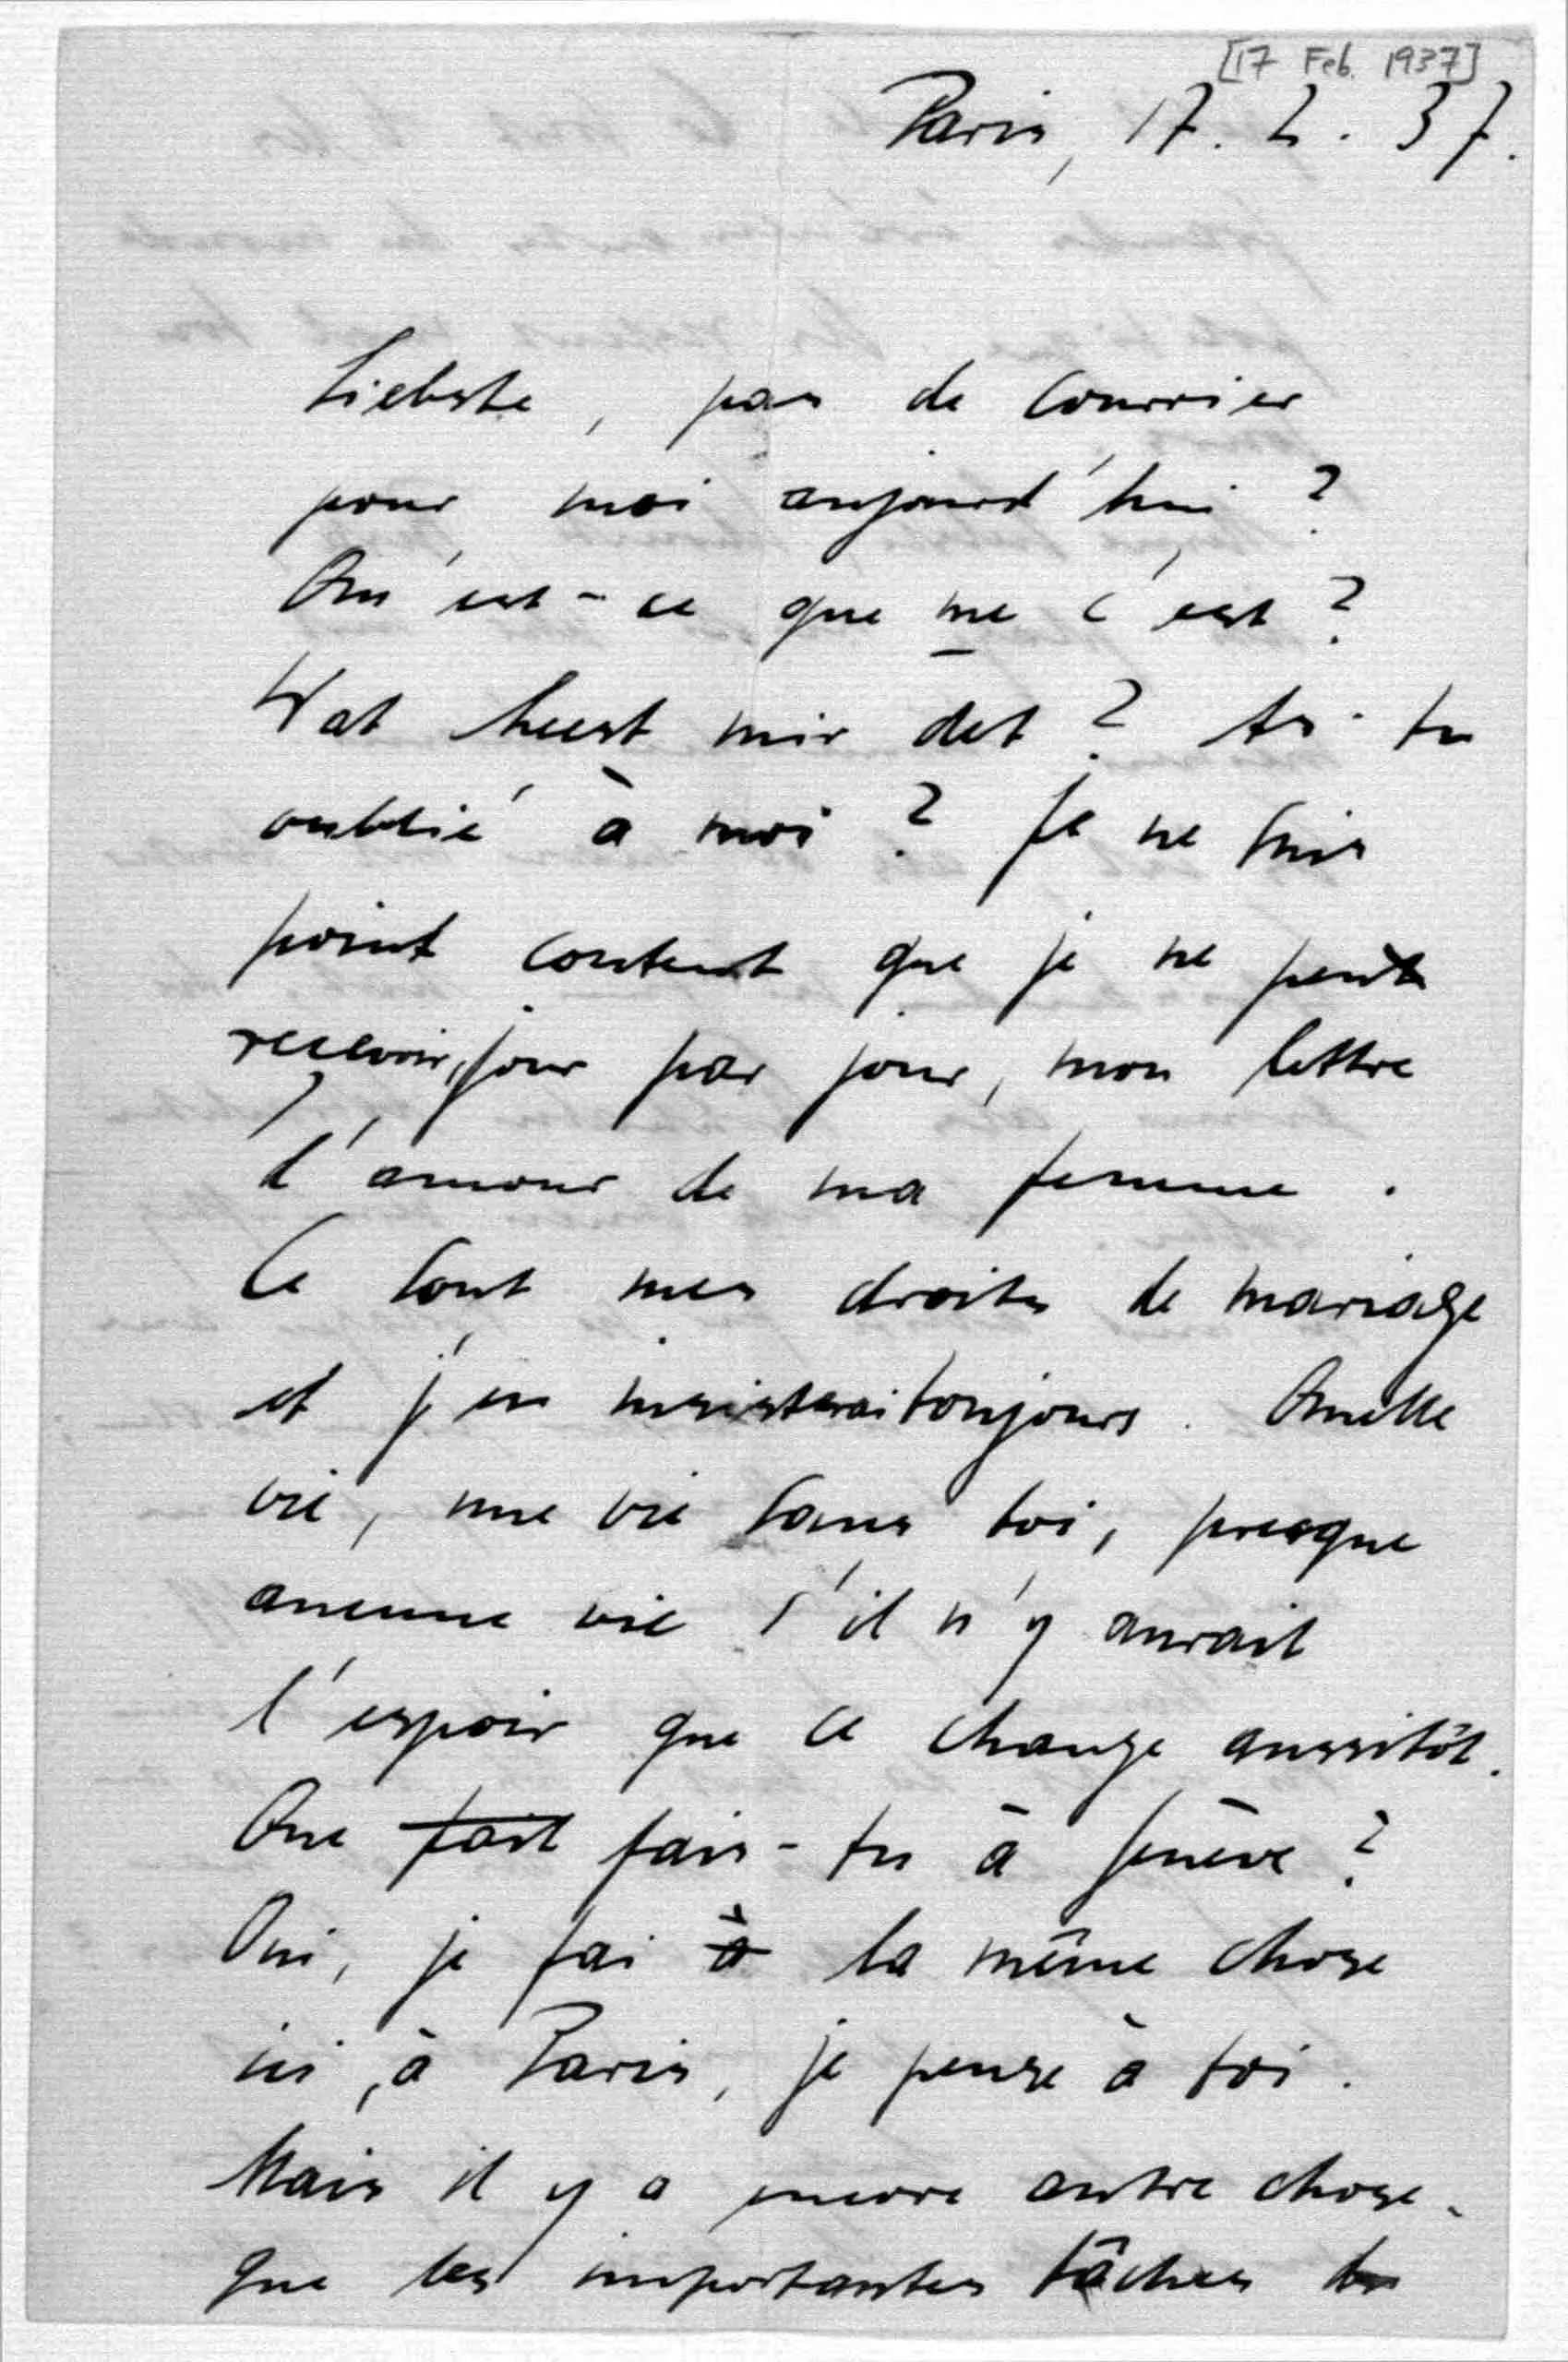 [17 Feb. 1937]
Paris, 17. 2. 37.
Liebste, pas de courrier
pour moi aujourd'hui ?
Qu'est-ce que me c'est ?
Wat heest mir det ? As-tu
oublié à moi ? Je ne suis
point content que je ne peux
recevoir, jour par jour, mon lettre
d'amour de ma femme.
Ce sont mes droits de mariage
et j'en insisterai toujours. Quelle
vie, une vie sans toi, presque
aucune vie s'il n'y aurait
l'espoir que ce change aussitôt.
Que fait fais-tu à Genève ?
Oui, je fai à la même chose
ici, à Paris, je pense à toi.
Mais il y a encore autre chose
que les importantes tâches